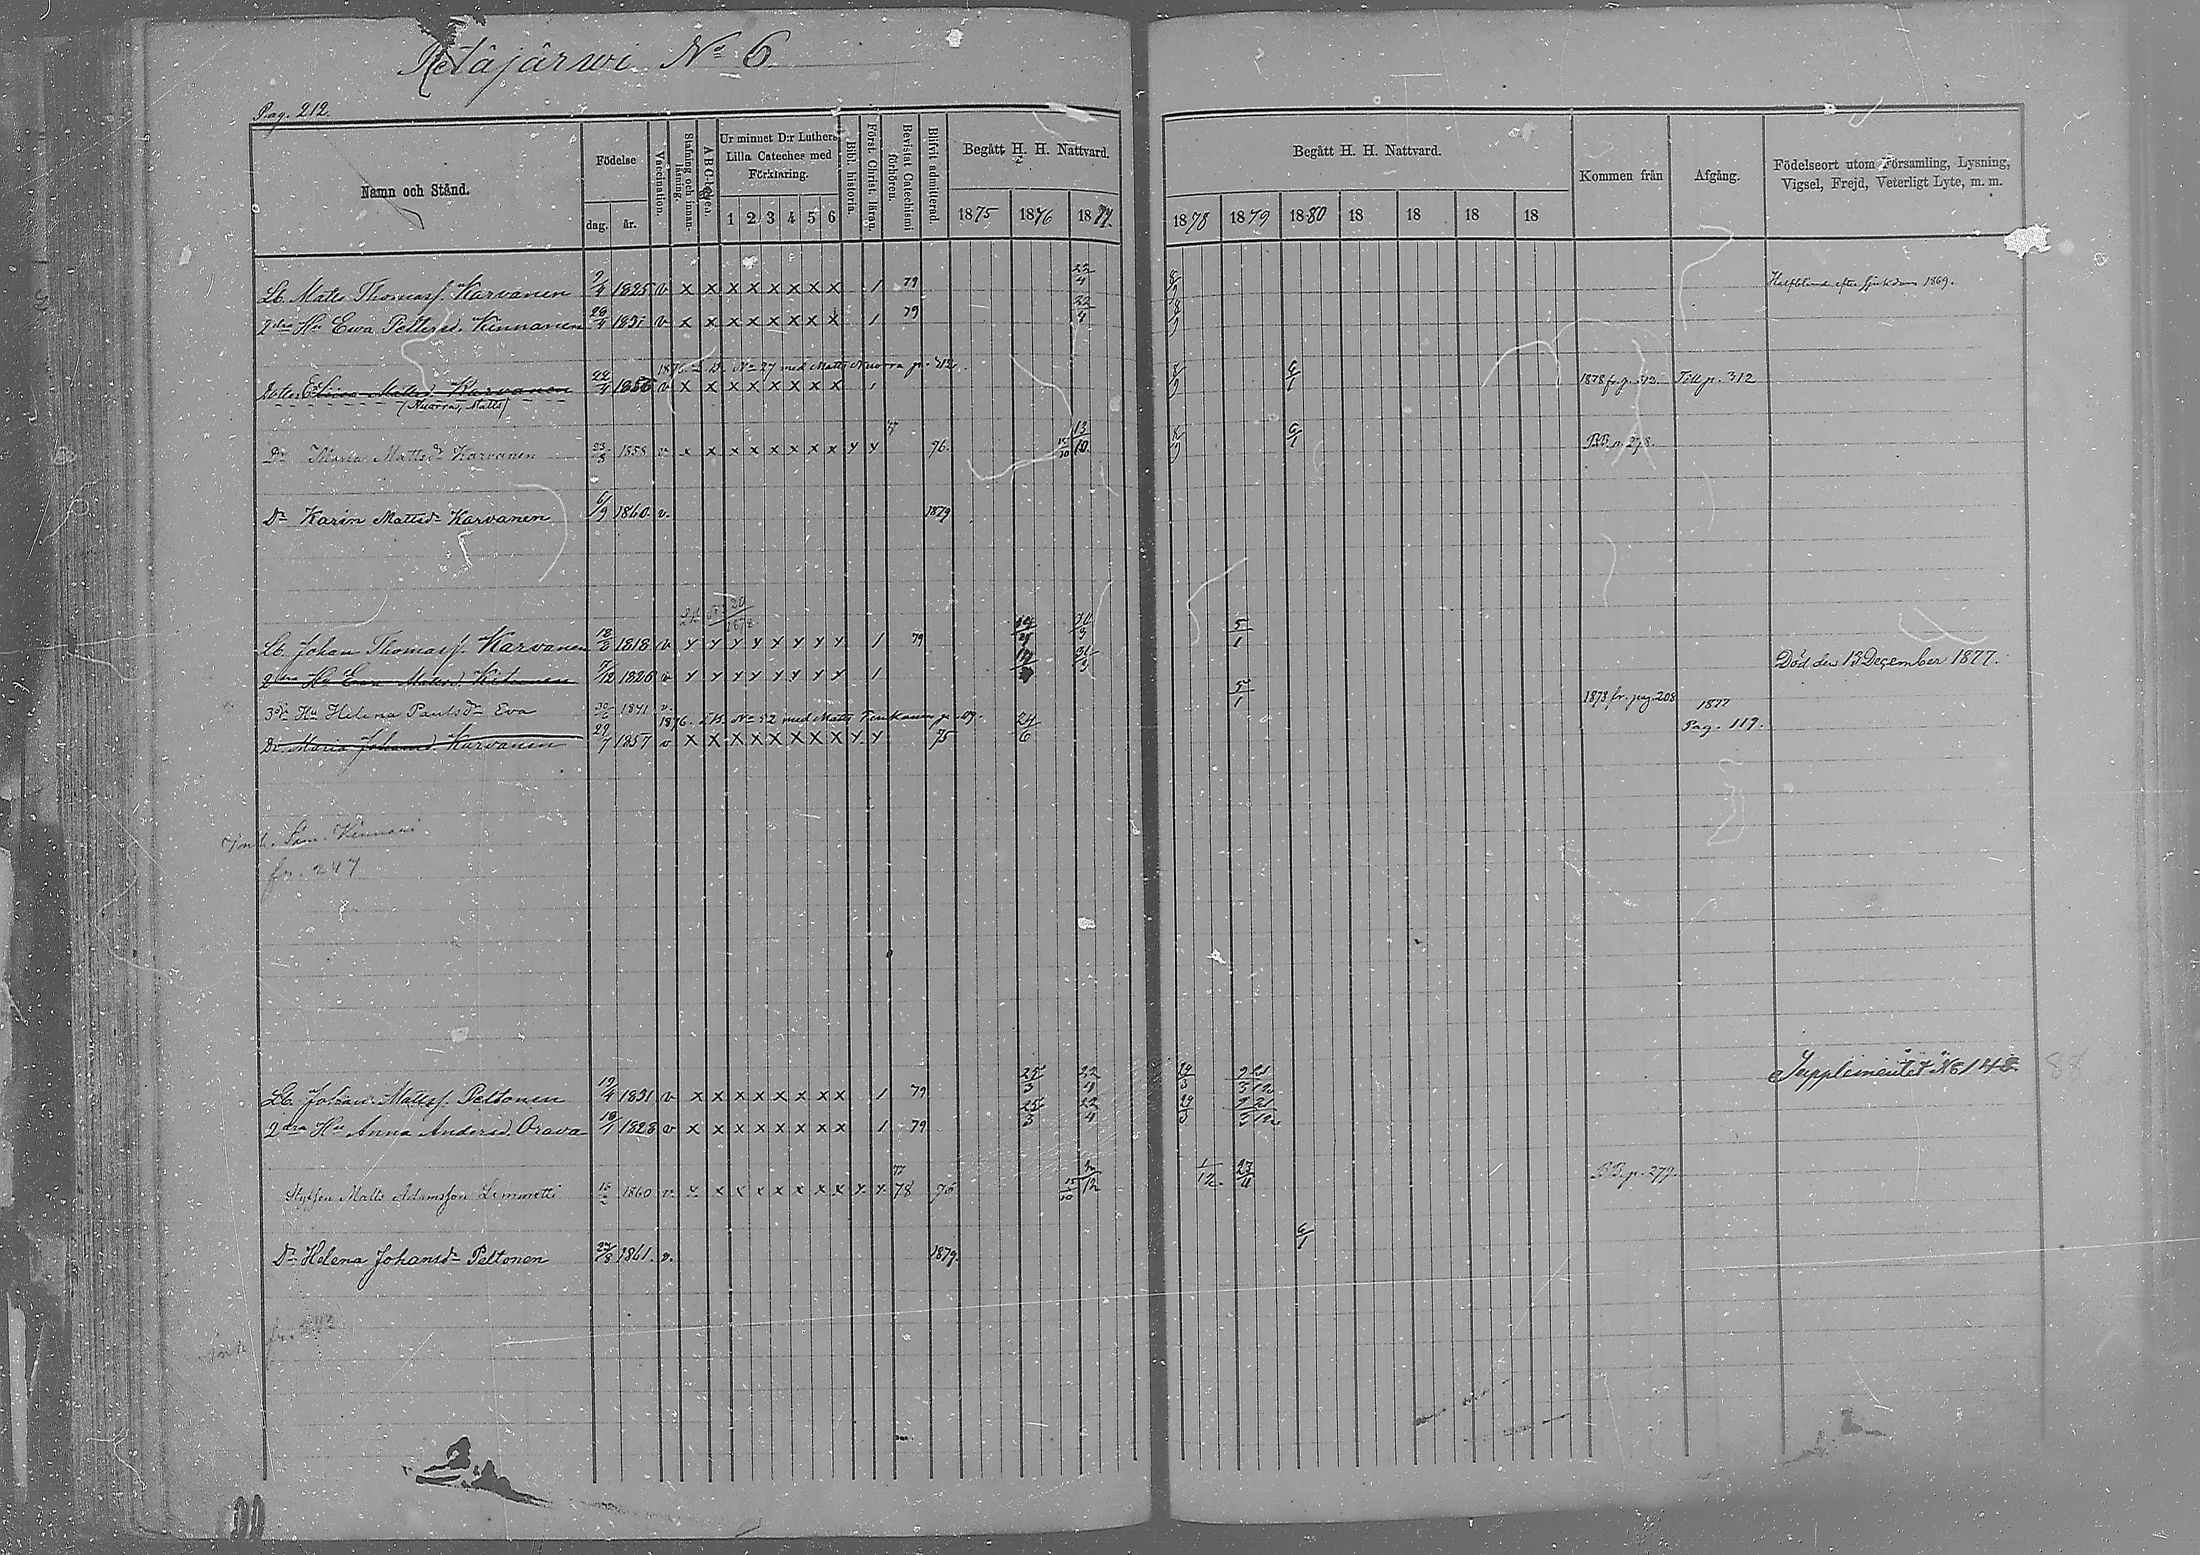 Petäjärwi No 6
Pag. 212.
Namn och Stånd.
Födelse
dag. år.
Vaccination.
Stafning och innan-läsning.
A B C-boken.
Ur minnet D:r Luthers Lilla Cateches med Förklaring.
1 2 3 4 5 6
Bibl. historia.
Först. Christ. läran.
Bevistat Catechismi förhören.
Blifvit admitterad.
Begått H. H. Nattvard.
1875 1876 1877.
Begått H. H. Nattvard.
1878 1879 1880 18 18 18 18
Kommen från
Afgång.
Födelseort utom Församling, Lysning, Vigsel, Frejd, Veterligt Lyte, m. m.
Lb. Matts Thomass. Karvanen 9/4 1825 v x x x x x x x x 1 79 22/4 8/9 Halfblind efter sjukdom 1869.
2dra Hu Ewa Pettersd. Kinnanen 29/4 1831 v x x x x x x x x 1 79 22/4 8/9
1876. L. B. No 27 med Matts Nuorra p. 312.
Dotter Elisa Mattsd. Karvanen 1856 v x x x x x x x x 1 8/9 6/1 1878 fr. p. 312. Till p. 312
(Nuorra, Matts)
Dr Maria Mattsdr Karvanen 23/3 1858 v. x x x x x x x x y y 76. 15/10 13/10 8/9 6/1 BB. p. 278.
Dr Karin Mattsdr Karvanen 6/9 1860 v. 1879
L.B. No 20/1878
Lb. Johan Thomass. Karvanen 18/8 1818 v y y y y y y y y 1 79 5/1
2dra Hu Eva Mattsd. 7/12 1826 v y y y y y y y y 1 Död den 13 December 1877.
3dje Hu Helena Paulsdr Eva 30/6 1841 v. 5/1 1878 fr. pag. 208
1876. L.B. No 52 med Matts 1877
Dr Maria Johansd Karvanen 29/7 1857 v x x x x x x x x y. y 75 24/6 Pag. 119.
Inh. Sim. Kinnari
fr. 247
Supplementet No 148 88
Lb. Johan Mattss. Peltonen 19/4 1831 v x x x x x x x x 1 79 25/3 22/4 24/3 9/3 21/12
2dra Hu Anna Andersd. Orava 18/1 1828 v x x x x x x x x 1 79 25/3 22/4 24/3 9/3 21/12
Styfson Matts Adamsson Lemmetti 1860 v. y. x x x x x x x y. y. 77 78 76 15/10 2/12 1/12. 23/11 BB. p. 279.
Dr Helena Johansdr Peltonen 27/8 1861. v. 1879. 6/1
Inh. fr. 242